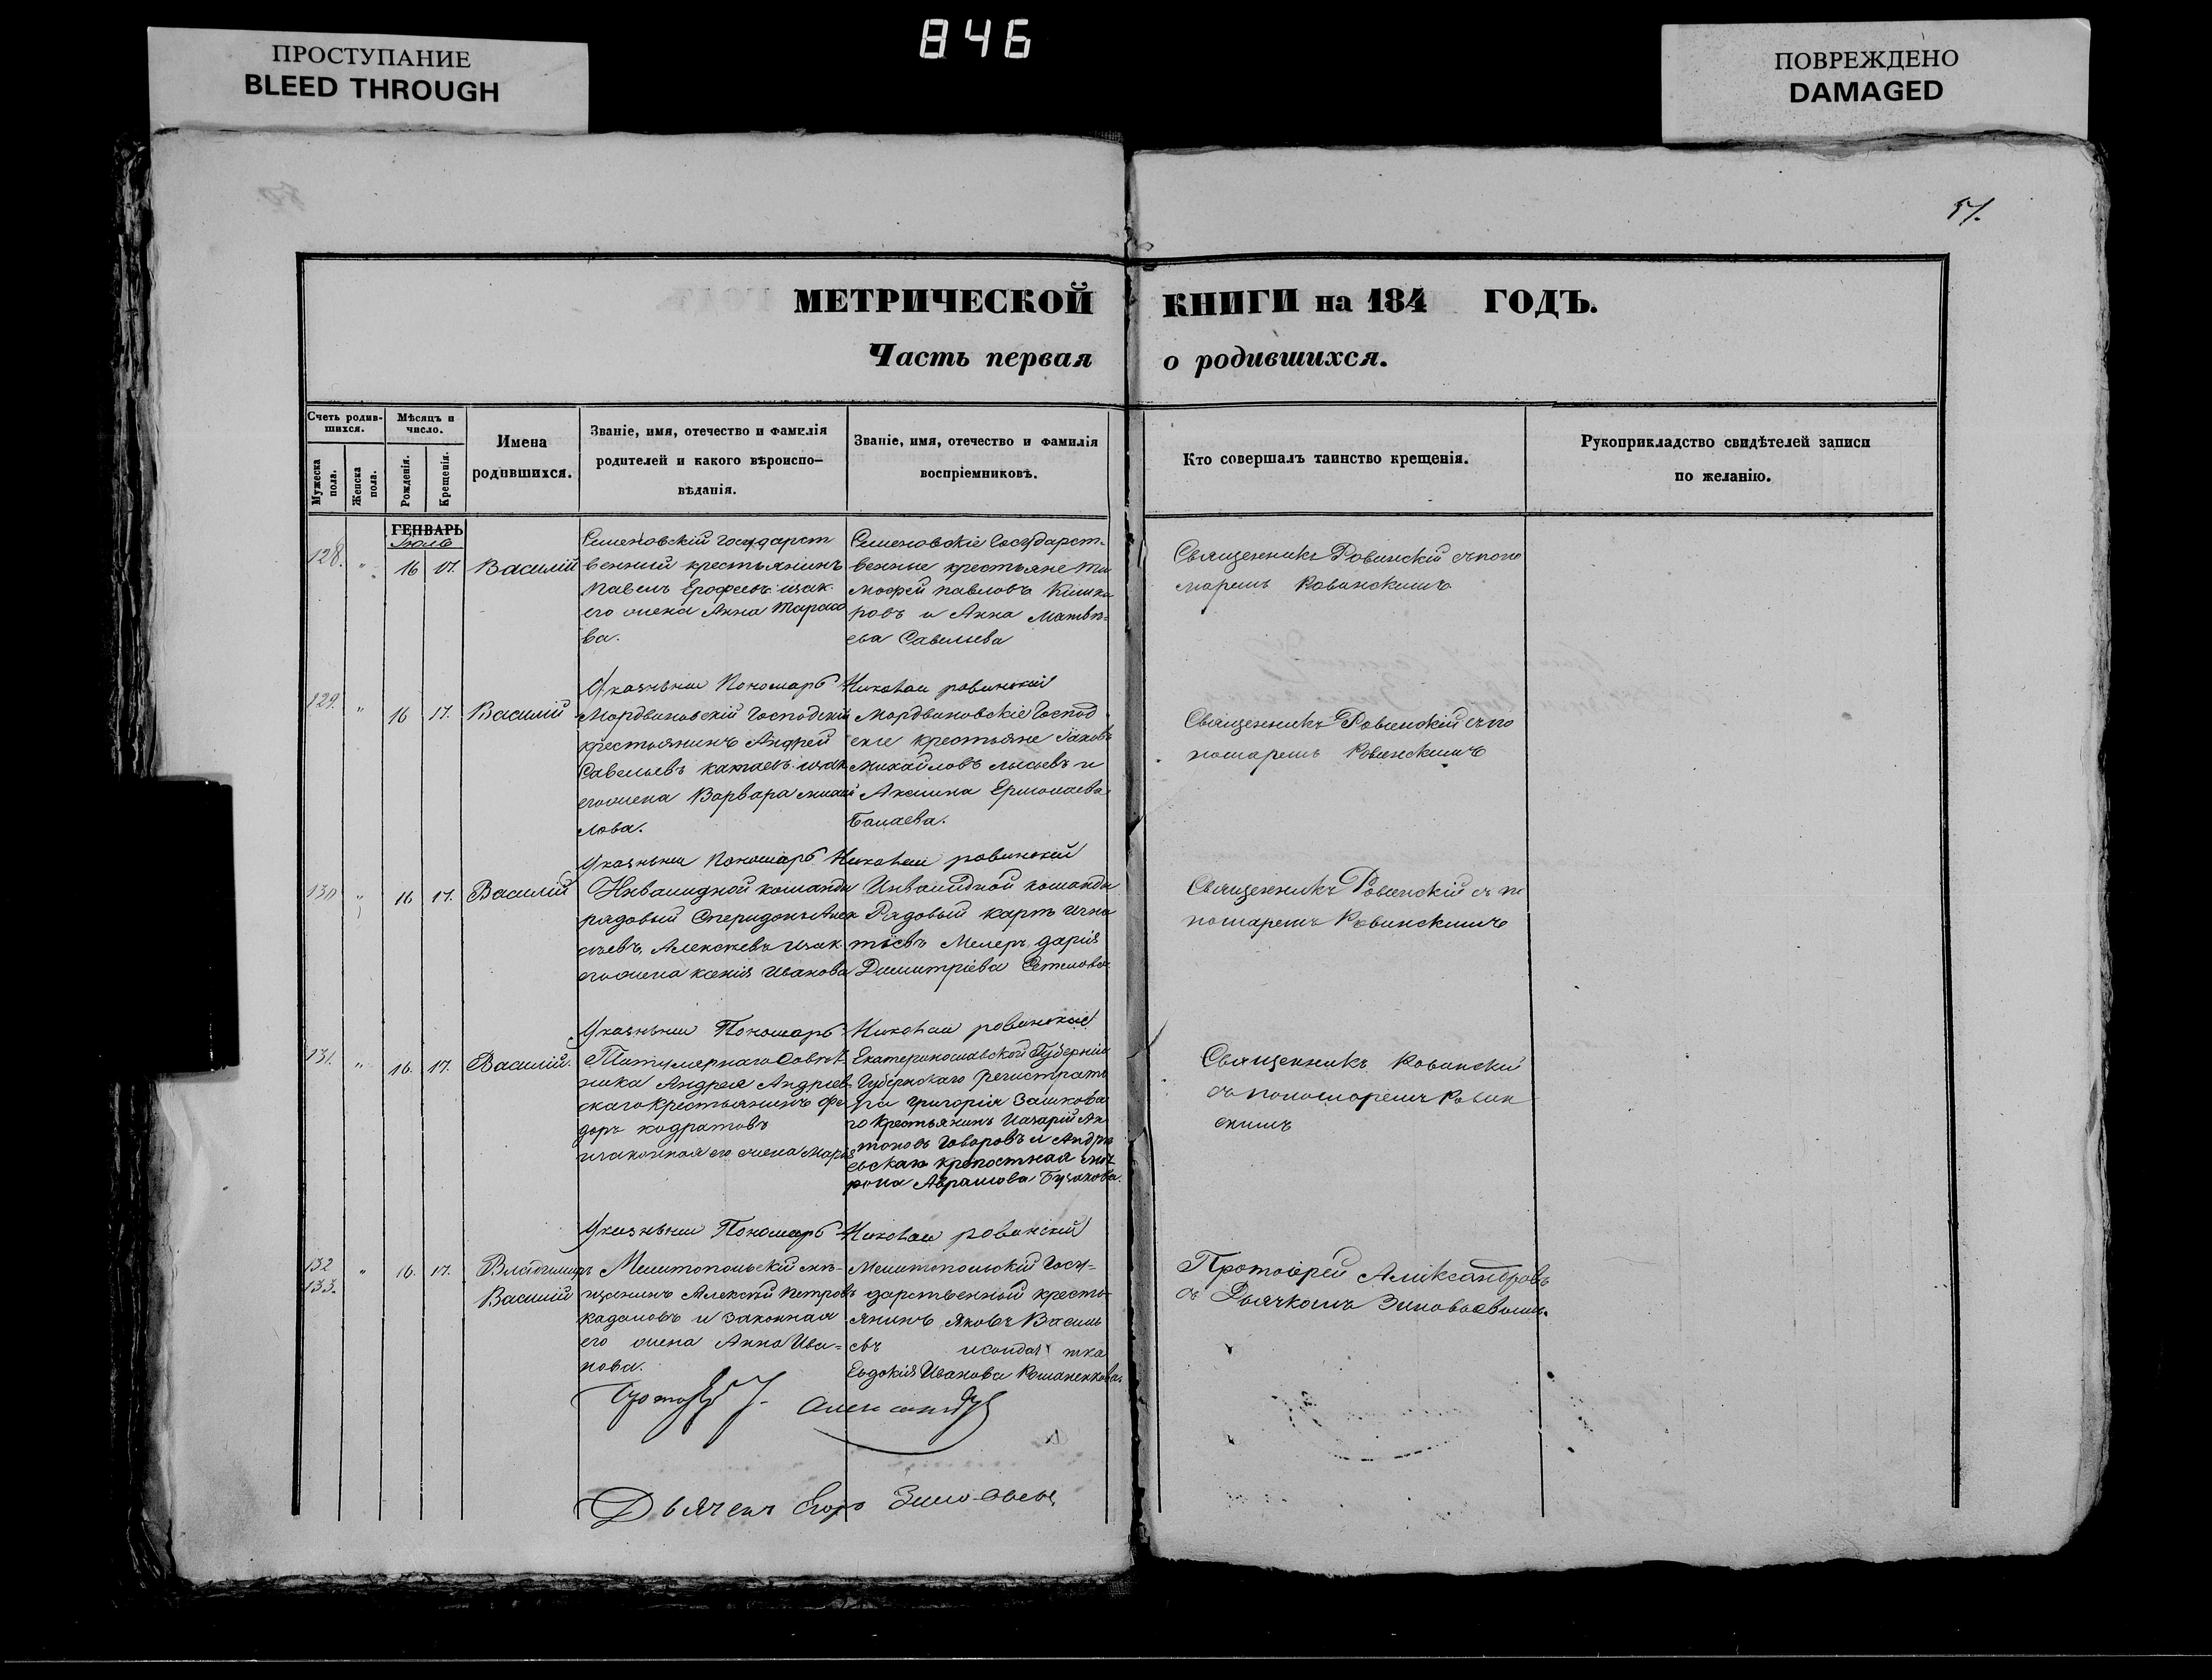 846
ПРОСТУПАНИЕ
BLEED THROUGH
ПОВРЕЖДЕНО
DAMAGED
51.
МЕТРИЧЕСКОЙ КНИГИ на 184 ГОДЪ.
Часть первая о родившихся.
Счетъ родив-
шихся.
Мужеска пола.
Женска пола.
Мѣсяцъ и
число.
Рожденія.
Крещенія.
Имена
родившихся.
Званіе, имя, отечество и фамилія
родителей и какого вѣроиспо-
вѣданія.
Званіе, имя, отечество и фамилія
воспріемниковъ.
Кто совершалъ таинство крещенія.
Рукоприкладство свидѣтелей записи
по желанію.
ГЕНВАРЬ
Июль
128. " 16 17. Василий
Семеновскій государст
венный крестьянинъ
Павелъ Ерофеевъ изак
его жена Анна Тарасо
ва.
Семеновскіе государст-
венные крестьяне Ти
мофей Павловъ
ровъ и Анна Матвѣ-
ева Савельева
Священникъ Ровинскій съ поно
маремъ Ровинскимъ
Пономарь Николай Ровинский
129. " 16 17. Василий
Мордвиновскій Господскій
крестьянинъ Андрей
Савельевъ Катаевъ изак
его жена Варвара Михай
лова.
Мордвиновскіе Господ
ские крестьяне Іаковъ
Михайловъ Лысьевъ и
Акилина Ермолаева
Балаева.
Священникъ Ровинскій съ по
номаремъ Ровинскимъ
Пономарь Николай Ровинский
130 " 16 17. Василій
Инвалидной команды
рядовый Спиридонъ
Алексѣевъ изак
его жена Ксенія Иванова
Инвалидной команды
Рядовый Карпъ Игна
тіевъ Мелеръ, Дарія
Димитріева
Священникъ Ровинскій съ по
номаремъ Ровинскимъ
Пономарь Николай Ровинский
131. " 16. 17. Василій.
Титулярнаго Совѣт-
ника Андрея Андріев
скаго крестьянинъ Фе
доръ Кодратовъ
изаконная его жена Марія
Екатеринославской Губерніи
Губернскаго Регистрато
ра Григорія Зашкова
го крестьянинъ Назарій Ан
тоновъ Говоровъ и Андрі
евскаго крепостная Мат
рона Аврамова Бузакова.
Священникъ Ровинский
съ пономаремъ Ровин
скимъ
Пономарь Николай Ровинский
132 133. " 16. 17. Владимиръ
Василий
Мелитопольскій мѣ-
щанинъ Алексѣй Петровъ
Кадамовъ и законная
его жена Анна Ива=
нова.
Мелитопольскій Госу=
дарственный кресть
янинъ Яковъ Василь
евъ и солдатка
Евдокія Иванова Романенкова.
Протоіерей Александровъ
съ Дьячкомъ Зиновьевымъ.
Протоіерей І. Александровъ
Дьячекъ Егоръ Зиновьевъ